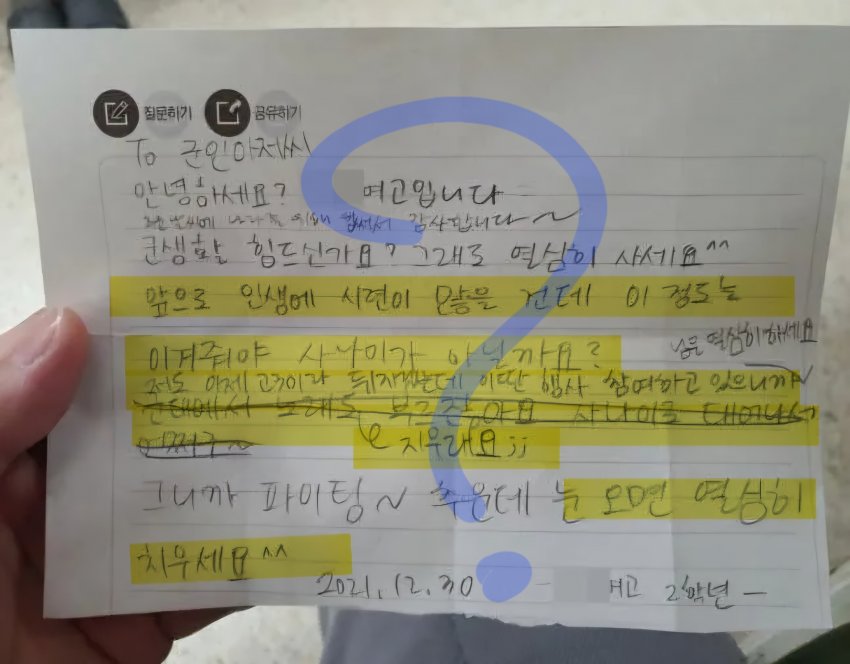 질문하기 공유하기
To 군인아저씨
안녕하세요? 여고입니다
감사합니다~
군생활 힘드신가요? 그래도 열심히 사세요^^
앞으로 인생에 시련이 많을 건데 이 정도는
이겨줘야 사나이가 아닐까요?
님은 열심히하세요
저도 이제 고3이라 뒤지겠는데 이딴 행사 참여하고 있으니까~
군대에서 노래도 부르잖아요 사나이로 태어나서
어쩌구~ 지우래요;;
그니까 파이팅~ 추운데 눈 오면 열심히
치우세요^^
2021.12.30 - 여고 2학년 -